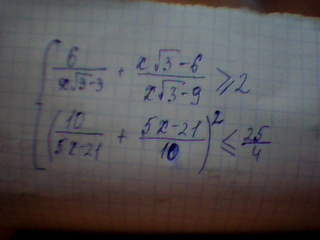 6/(x√3-3) + (x√3-6)/(x√3-9) ≥ 2
(10/(5x-21) + (5x-21)/10)² ≤ 25/4